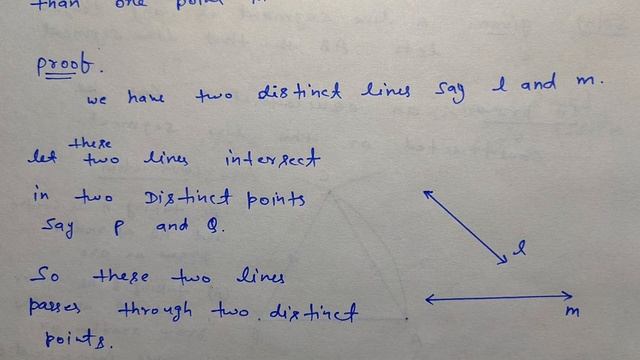 than one point in
proof.
we have two distinct lines say l and m.
let these two lines intersect
in two Distinct points
say P and Q.
So these two lines
passes through two distinct
points.
l
m